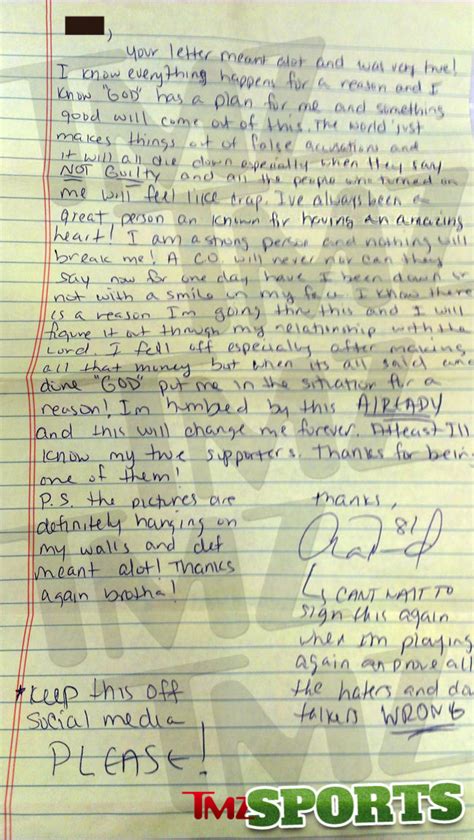 )
your letter meant alot and was very true!
I know everything happens for a reason and I
know "GOD" has a plan for me and something
good will come out of this. The world just
makes things out of false accusations and
it will all die down especially when they say
NOT GUILTY and all the people who turned on
me will feel like crap. I've always been a
great person an known for having an amazing
heart! I am a strong person and nothing will
break me! A C.O. will never nor can they
say now for one day have I been down or
not with a smile on my face. I know there
is a reason I'm going thru this and I will
figure it out through my relationship with the
Lord. I fell off especially after making
all that money but when its all said and
done "GOD" put me in the situation for a
reason! I'm humbled by this ALREADY
and this will change me forever. Atleast I'll
know my true supporters. Thanks for being
one of them!
P.S. the pictures are
definitely hanging on
my walls and def
meant alot! Thanks
again brotha!
Thanks,
81
CANT WAIT TO
sign this again
when I'm playing
again an prove all
the haters and
talkers WRONG
*Keep this off
social media
PLEASE!
TMZ SPORTS
TMZ